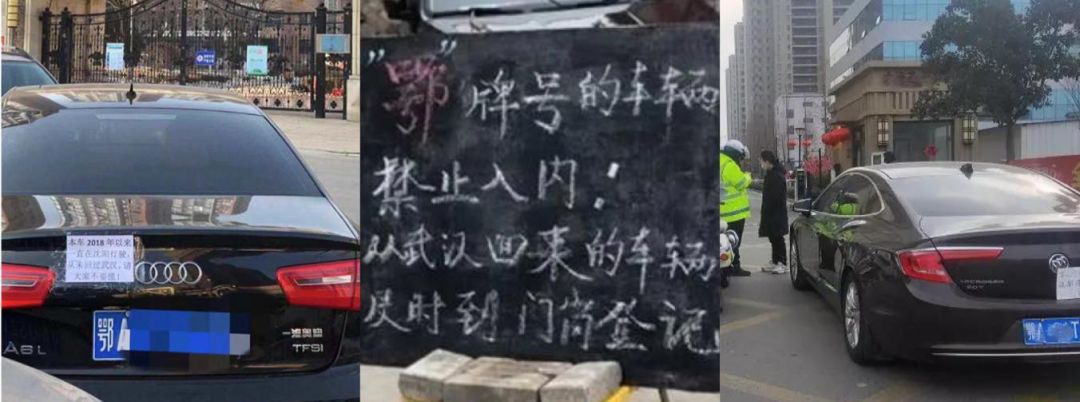 本车2018年以来
一直在沈阳行驶,
从未回过武汉,请
大家不要慌!
鄂A
A6L
一汽奥迪
TFSI
"鄂"牌号的车辆
禁止入内!
从武汉回来的车辆
及时到门岗登记
鄂